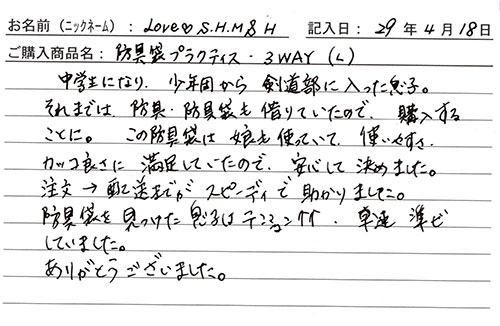 お名前(ニックネーム):Love♡S.H.M&H 記入日:29年4月18日
ご購入商品名:防具袋プラクティス・3WAY(L)
中学生になり、少年団から剣道部に入った息子。
それまでは、防具・防具袋も借りていたので、購入する
ことに。この防具袋は娘も使っていて、使いやすさ、
カッコ良さに満足していたので、安心して決めました。
注文→配送までがスピーディで助かりました。
防具袋を見つけた息子はテンション↑↑、早速準ビ
していました。
ありがとうございました。